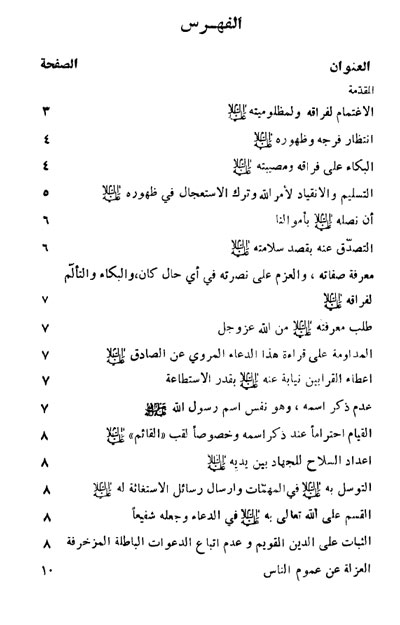 الفهـرس
العنوان الصفحة
المقدّمة
الاغتمام لفراقه ولمظلوميته عليه السلام ٣
انتظار فرجه وظهوره عليه السلام ٤
البكاء على فراقه ومصيبته عليه السلام ٤
التسليم والانقياد لأمر الله وترك الاستعجال في ظهوره عليه السلام ٥
أن نصله عليه السلام بأموالنا ٦
التصدّق عنه بقصد سلامته عليه السلام ٦
معرفة صفاته ، والعزم على نصرته في أي حال كان،والبكاء والتألّم
لفراقه عليه السلام ٧
طلب معرفته عليه السلام من الله عزوجل ٧
المداومة على قراءة هذا الدعاء المروي عن الصادق عليه السلام ٧
اعطاء القرابين نيابة عنه عليه السلام بقدر الاستطاعة ٧
عدم ذكر اسمه ، وهو نفس اسم رسول الله ﷺ ٧
القيام احتراماً عند ذكر اسمه وخصوصاً لقب «القائم» عليه السلام ٨
اعداد السلاح للجهاد بين يديه عليه السلام ٨
التوسل به عليه السلام في المهمّات وارسال رسائل الاستغاثة له عليه السلام ٨
القسم على الله تعالى به عليه السلام في الدعاء وجعله شفيعاً ٨
الثبات على الدين القويم و عدم اتباع الدعوات الباطلة المزخرفة ٨
العزلة عن عموم الناس ١٠